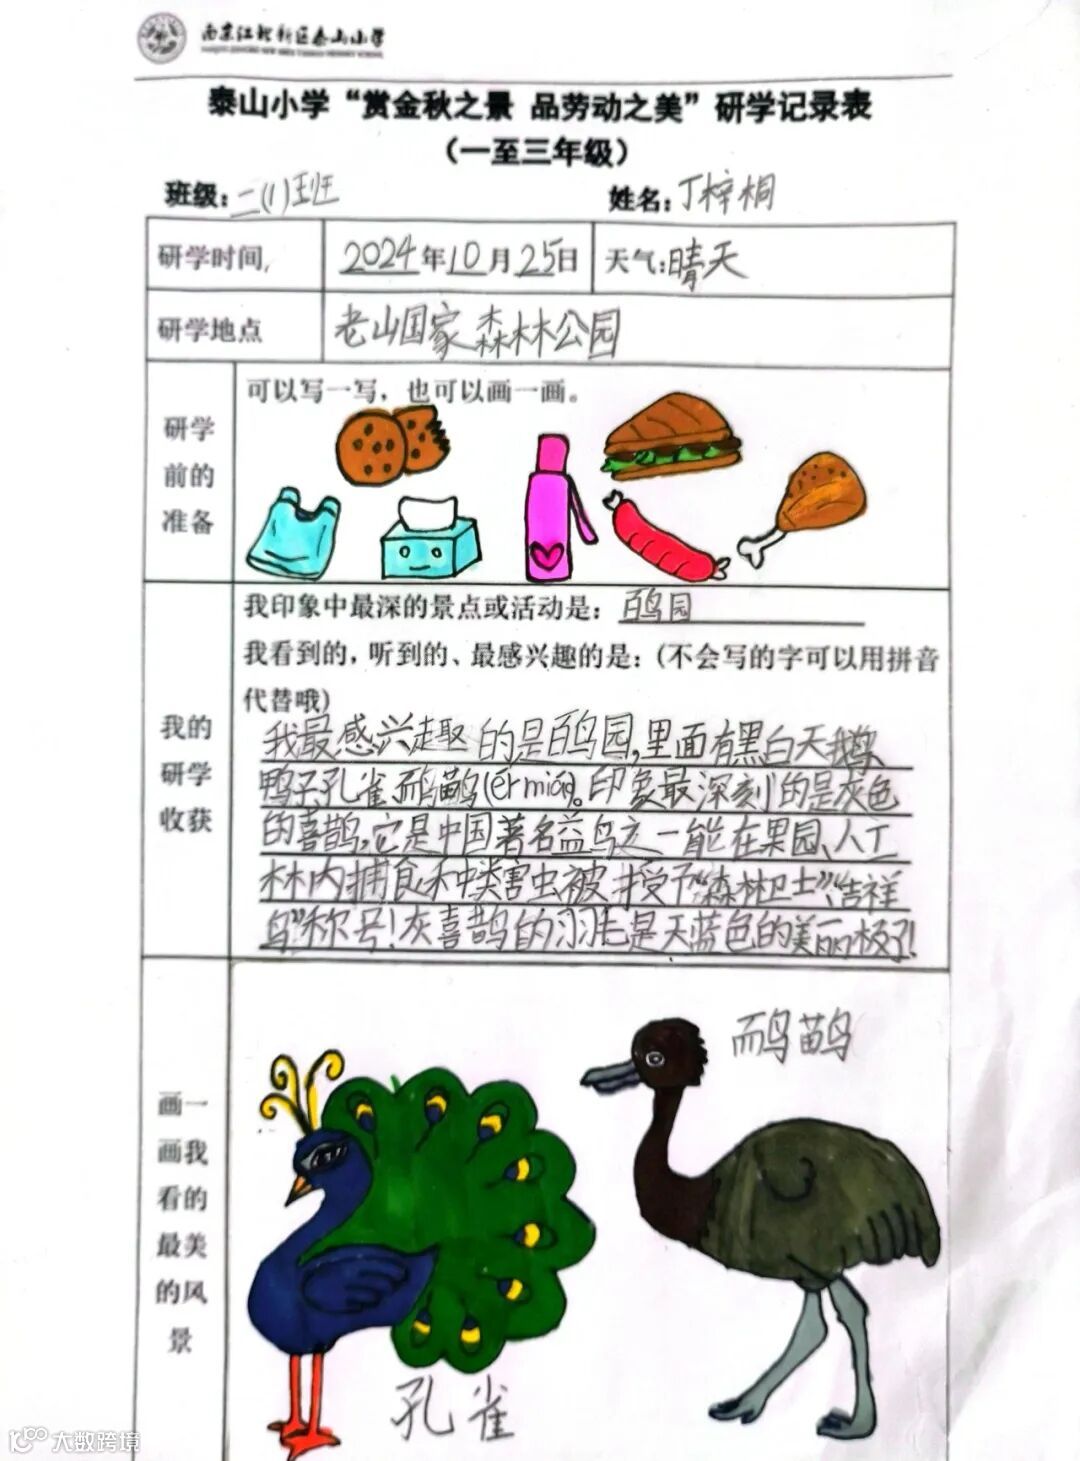 南京江北新区泰山小学
泰山小学“赏金秋之景 品劳动之美”研学记录表
（一至三年级）
班级：二(1)班 姓名：丁梓桐
研学时间 2024年10月25日 天气：晴天
研学地点 老山国家森林公园
研学前的准备
可以写一写，也可以画一画。
我的研学收获
我印象中最深的景点或活动是：百鸟园
我看到的，听到的、最感兴趣的是：（不会写的字可以用拼音
代替哦）
我最感兴趣的是百鸟园，里面有黑白天鹅、
鸭子、孔雀、鸸鹋(ér miáo)。印象最深刻的是灰色
的喜鹊，它是中国著名益鸟之一能在果园、人工
林内捕食种类害虫被授予“森林卫士”、“吉祥
鸟”称号！灰喜鹊的羽毛是天蓝色的美丽极了！
画一画我看的最美的风景
鸸鹋
孔雀
大数跨境